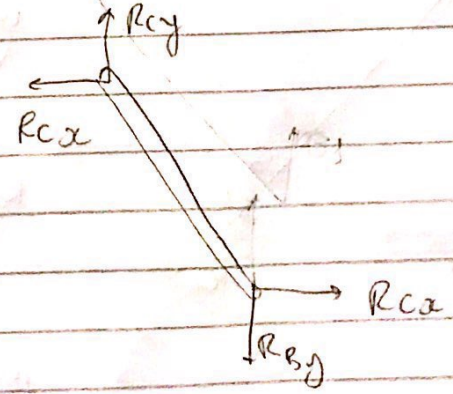 Rcy
Rcx
Rcx
RBy